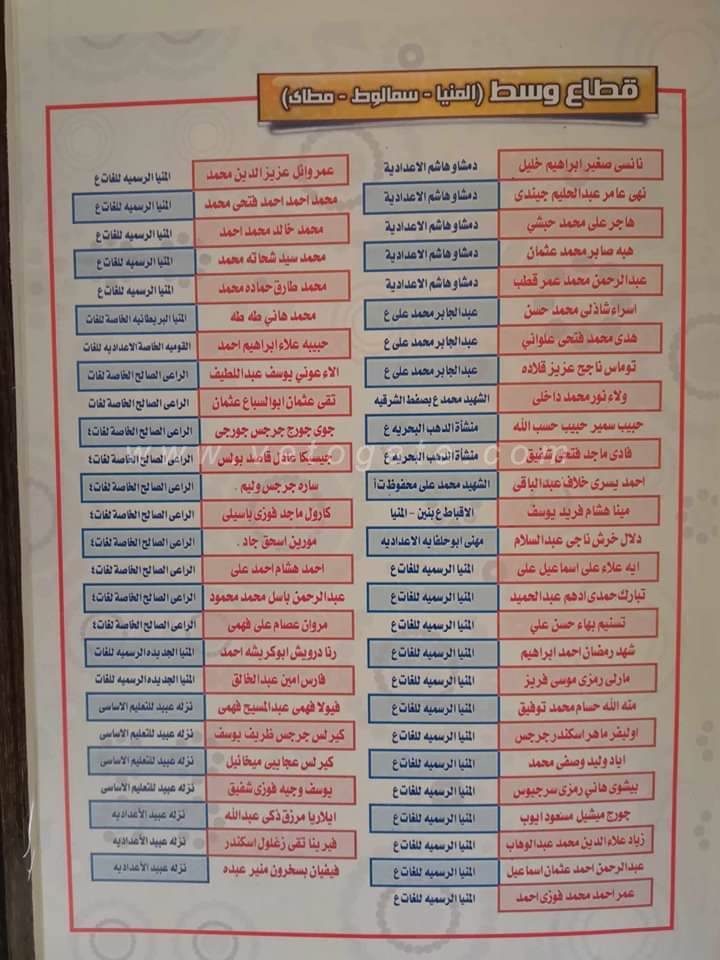 قطاع وسط (المنيا - سمالوط - مطاى)
نانسى صغير ابراهيم خليل دمشاو هاشم الاعدادية
نهى عامر عبدالحليم جيندى دمشاو هاشم الاعدادية
هاجر على محمد حبشي دمشاو هاشم الاعدادية
هبه صابر محمد عثمان دمشاو هاشم الاعدادية
عبدالرحمن محمد عمر قطب دمشاو هاشم الاعدادية
اسراء شاذلى محمد حسن عبدالجابر محمد على ع
هدى محمد فتحى علوانى عبدالجابر محمد على ع
توماس ناجح عزيز قلاده عبدالجابر محمد على ع
ولاء نور محمد داخلى الشهيد محمد ع بصفط الشرقيه
حبيب سمير حبيب حسب الله منشأة الذهب البحريه ع
فادى ماجد فتحى شفيق منشأة الذهب البحريه ع
احمد يسرى خلاف عبدالباقى الشهيد محمد على محفوظ ت أ
مينا هشام فريد يوسف الاقباط ع بنين - المنيا
دلال خرش ناجى عبدالسلام مهنى ابوحلفايه الاعداديه
ايه علاء على اسماعيل على المنيا الرسميه للغات ع
تبارك حمدى ادهم عبدالحميد المنيا الرسميه للغات ع
تسنيم بهاء حسن علي المنيا الرسميه للغات ع
شهد رمضان احمد ابراهيم المنيا الرسميه للغات ع
مارلى رمزى موسى فريز المنيا الرسميه للغات ع
منه الله حسام محمد توفيق المنيا الرسميه للغات ع
اوليفر ماهر اسكندر جرجس المنيا الرسميه للغات ع
اياد وليد وصفى محمد المنيا الرسميه للغات ع
بيشوى هاني رمزى سرجيوس المنيا الرسميه للغات ع
جورج ميشيل مسعود ايوب المنيا الرسميه للغات ع
زياد علاء الدين محمد عبدالوهاب المنيا الرسميه للغات ع
عبدالرحمن احمد عثمان اسماعيل المنيا الرسميه للغات ع
عمر احمد محمد فوزى احمد المنيا الرسميه للغات ع
عمر وائل عزيز الدين محمد المنيا الرسميه للغات ع
محمد احمد احمد فتحى محمد المنيا الرسميه للغات ع
محمد خالد محمد احمد المنيا الرسميه للغات ع
محمد سيد شحاته محمد المنيا الرسميه للغات ع
محمد طارق حماده محمد المنيا الرسميه للغات ع
محمد هاني طه طه المنيا البريطانيه الخاصة للغات
حبيبه علاء ابراهيم احمد القوميه الخاصة الاعداديه للغات
الاء عوني يوسف عبداللطيف الراعى الصالح الخاصة لغات
تقى عثمان ابوالسباع عثمان الراعى الصالح الخاصة لغات
جوى جورج جرجس جورجى الراعى الصالح الخاصة لغات٤
جيسيكا عادل قاصد بولس الراعى الصالح الخاصة لغات٤
ساره جرجس وليم . الراعى الصالح الخاصة لغات٤
كارول ماجد فوزى باسيلى الراعى الصالح الخاصة لغات٤
مورين اسحق جاد . الراعى الصالح الخاصة لغات٤
احمد هشام احمد على الراعى الصالح الخاصة لغات٤
عبدالرحمن باسل محمد محمود الراعى الصالح الخاصة لغات٤
مروان عصام على فهمى الراعى الصالح الخاصة لغات٤
رنا درويش ابوكريشه احمد المنيا الجديده الرسميه للغات
فارس امين عبدالخالق المنيا الجديده الرسميه للغات
فيولا فهمى عبدالمسيح فهمى نزله عبيد للتعليم الاساسى
كيرلس جرجس ظريف يوسف نزله عبيد للتعليم الاساسى
كيرلس عجايبى ميخائيل نزله عبيد للتعليم الاساسى
يوسف وجيه فوزى شفيق نزله عبيد للتعليم الاساسى
ايلاريا مرزق ذكى عبدالله نزله عبيد الأعداديه
فيرينا تقى زغلول اسكندر نزله عبيد الأعداديه
فيفيان بسخرون منير عبده نزله عبيد الأعداديه
www.vetogate.com